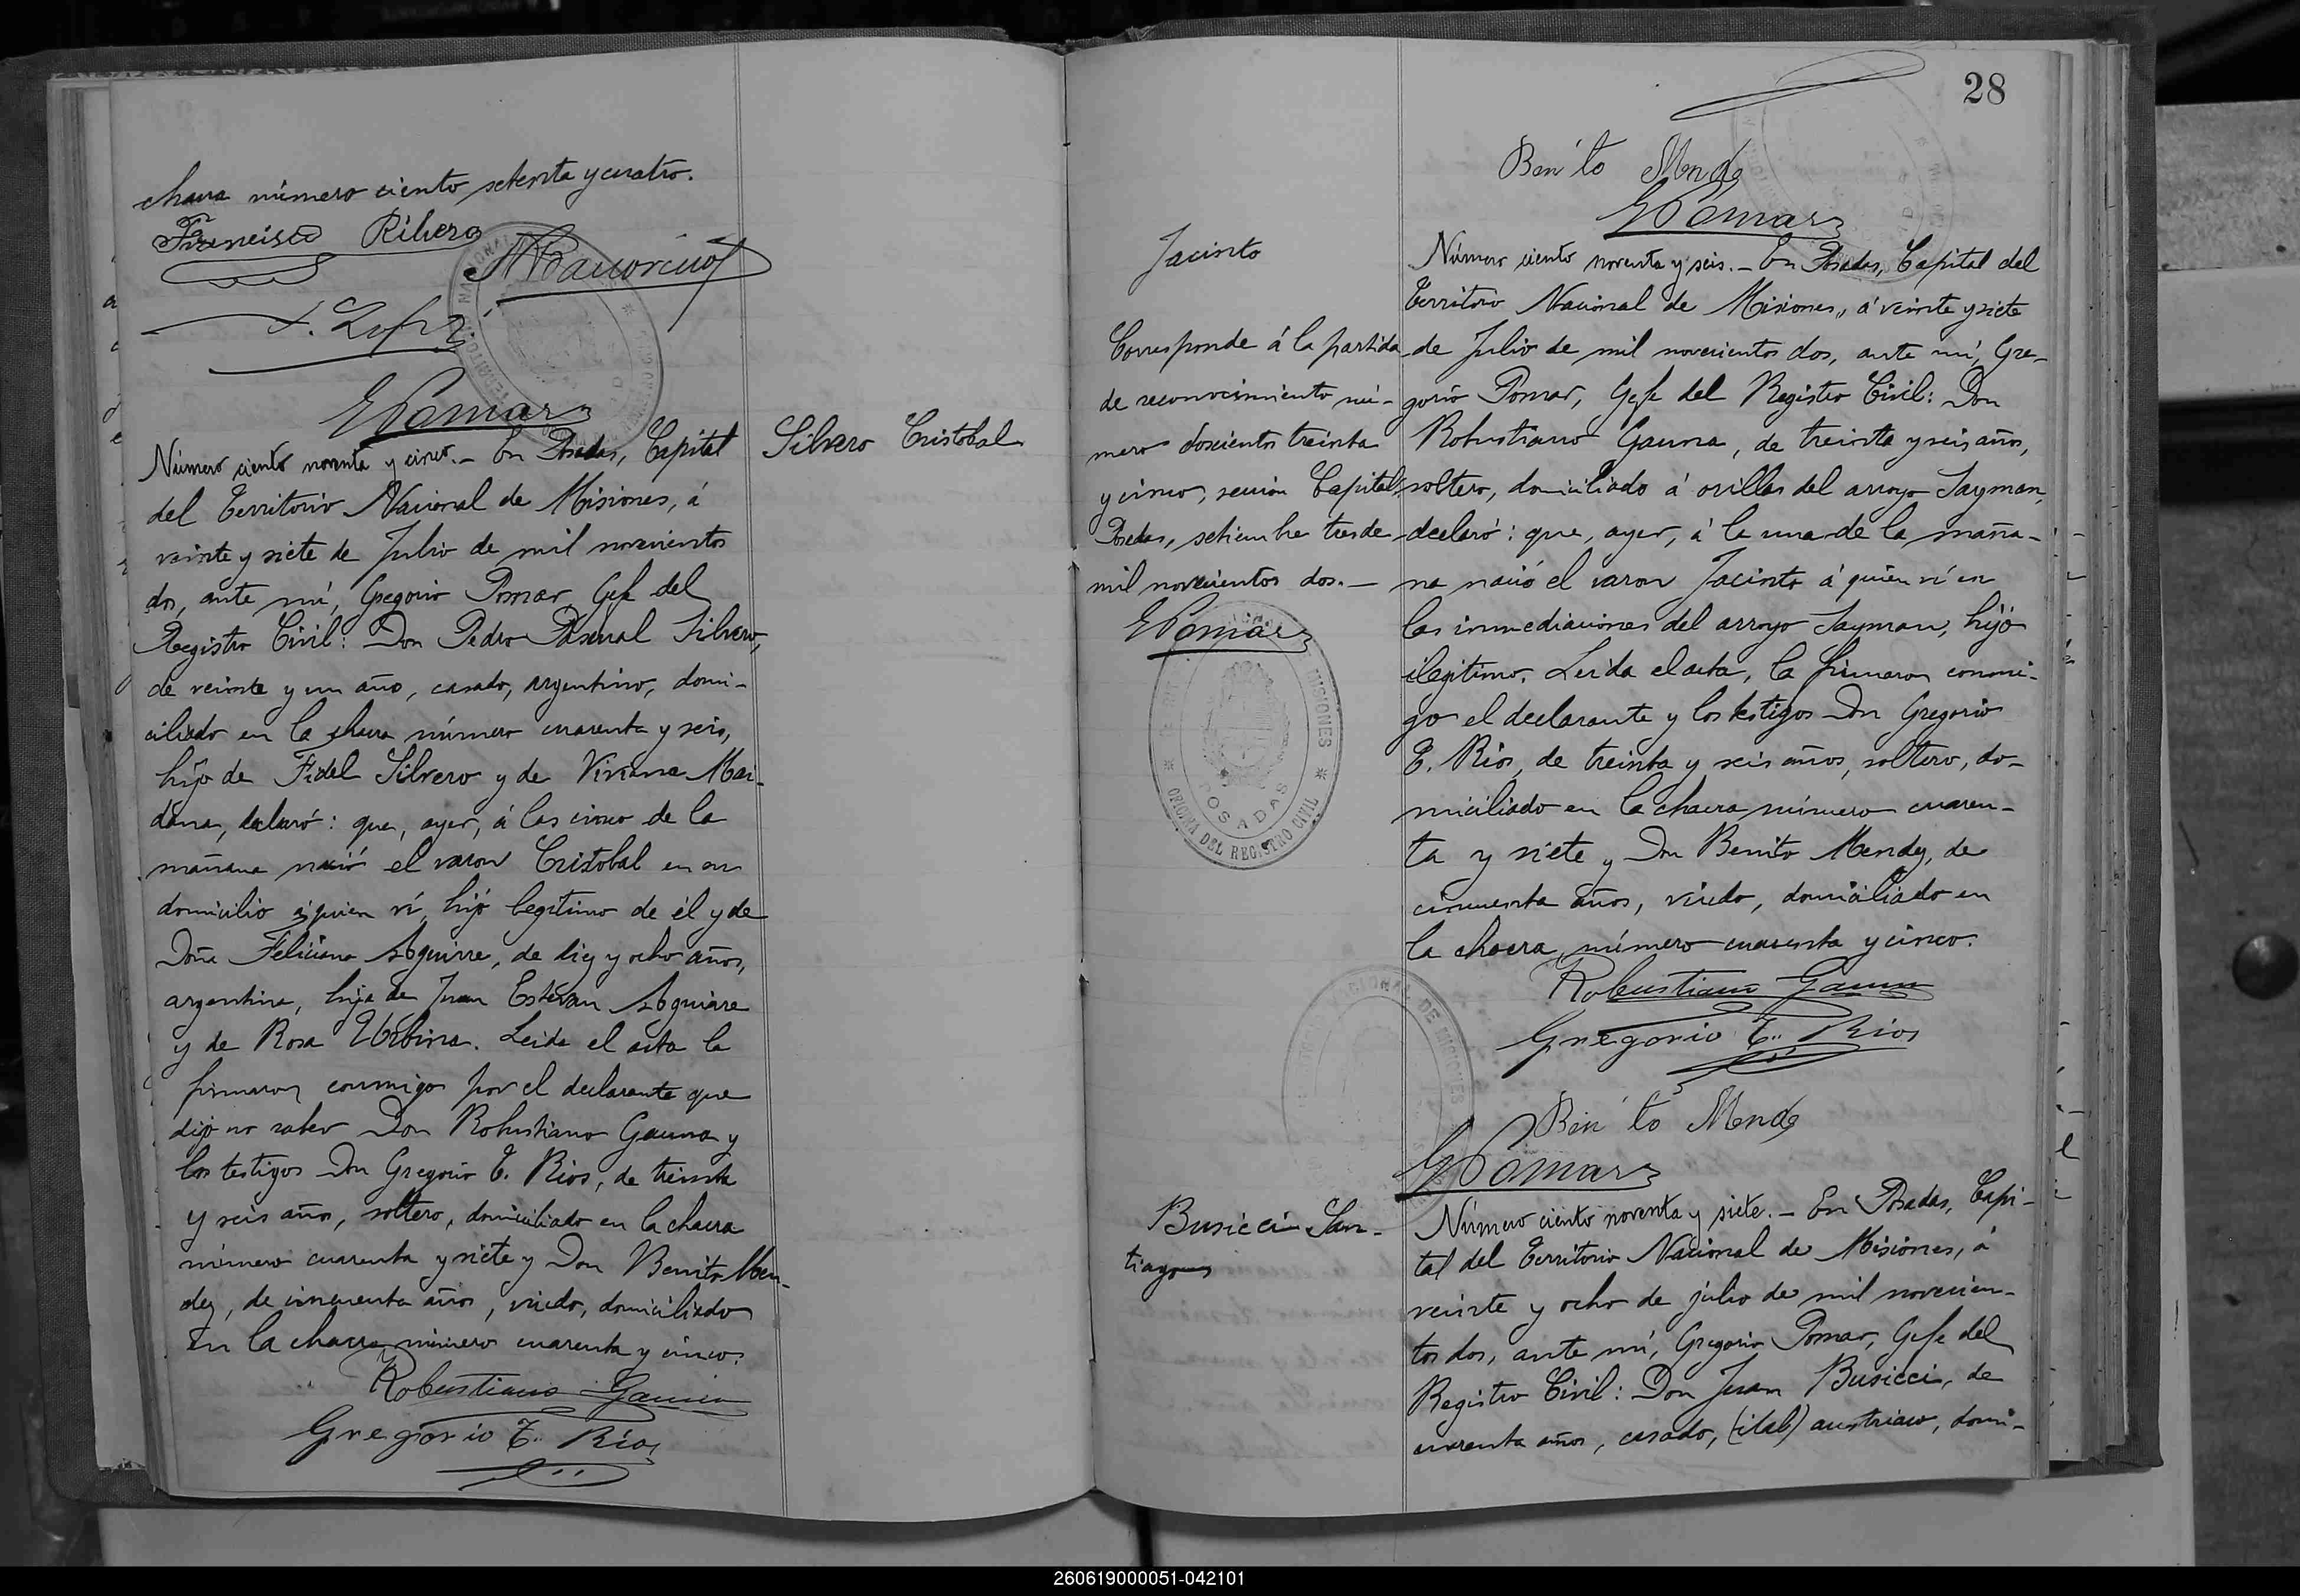 chacra número ciento setenta y cuatro.
Francisco Ribero
E Pomar
Número ciento noventa y cinco.- En Posadas, Capital
del Territorio Nacional de Misiones, á
veinte y siete de Julio de mil novecientos
dos, ante mí, Gregorio Pomar Gefe del
Registro Civil: Don Pedro Pascual Silvero,
de veinte y un año, casado, argentino, domi-
ciliado en la chacra número cuarenta y seis,
hijo de Fidel Silvero y de Viviana Mai-
dana, declaró: que, ayer, á las cinco de la
mañana nació el varon Cristobal en su
domicilio á quien ví, hijo legítimo de él y de
Doña Feliciana Aguirre, de diez y ocho años,
argentina, hija de Juan Estevan Aguirre
y de Rosa Urbina. Leida el acta la
firmaron conmigo por el declarante que
dijo no saber Don Robustiano Gauna y
los testigos Don Gregorio T. Rios, de treinta
y seis años, soltero, domiciliado en la chacra
número cuarenta y siete y Don Benito Men-
dez, de cincuenta años, viudo, domiciliado
en la chacra número cuarenta y cinco.
Robustiano Gauna
Gregorio T. Rios
Silvero Cristobal
28
Benito Mendez
E Pomar
Jacinto
Corresponde á la partida
de reconocimiento nú-
mero doscientos treinta
y cinco, sección Capital.
Posadas, setiembre tres de
mil novecientos dos.-
E Pomar
MISIONES
POSADAS
OFICINA DEL REGISTRO CIVIL
Número ciento noventa y seis.- En Posadas, Capital del
Territorio Nacional de Misiones, á veinte y siete
de Julio de mil novecientos dos, ante mí, Gre-
gorio Pomar, Gefe del Registro Civil: Don
Robustiano Gauna, de treinta y seis años,
soltero, domiciliado á orillas del arroyo Sayman,
declaró: que, ayer, á la una de la maña-
na nació el varon Jacinto á quien ví en
las inmediaciones del arroyo Sayman, hijo
ilegítimo. Leida el acta, la firmaron conmi-
go el declarante y los testigos Don Gregorio
T. Rios, de treinta y seis años, soltero, do-
miciliado en la chacra número cuaren-
ta y siete y Don Benito Mendez, de
cincuenta años, viudo, domiciliado en
la chacra número cuarenta y cinco.
Robustiano Gauna
Gregorio T. Rios
Benito Mendez
E Pomar
Busicci San-
tiago
Número ciento noventa y siete.- En Posadas, Capi-
tal del Territorio Nacional de Misiones, á
veinte y ocho de julio de mil novecien-
tos dos, ante mí, Gregorio Pomar, Gefe del
Registro Civil: Don Juan Busicci, de
cuarenta años, casado, (ital) austriaco, domi-
260619000051-042101